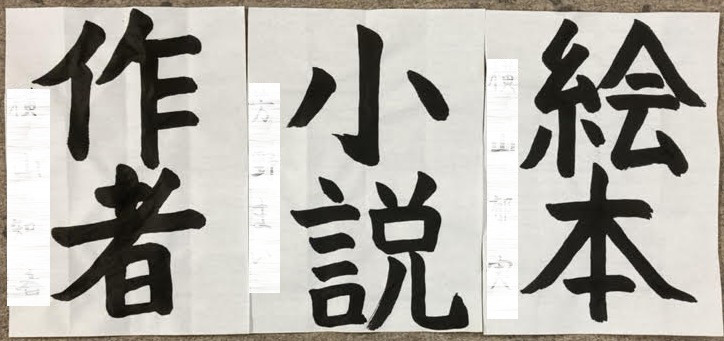 絵本
小説
作者